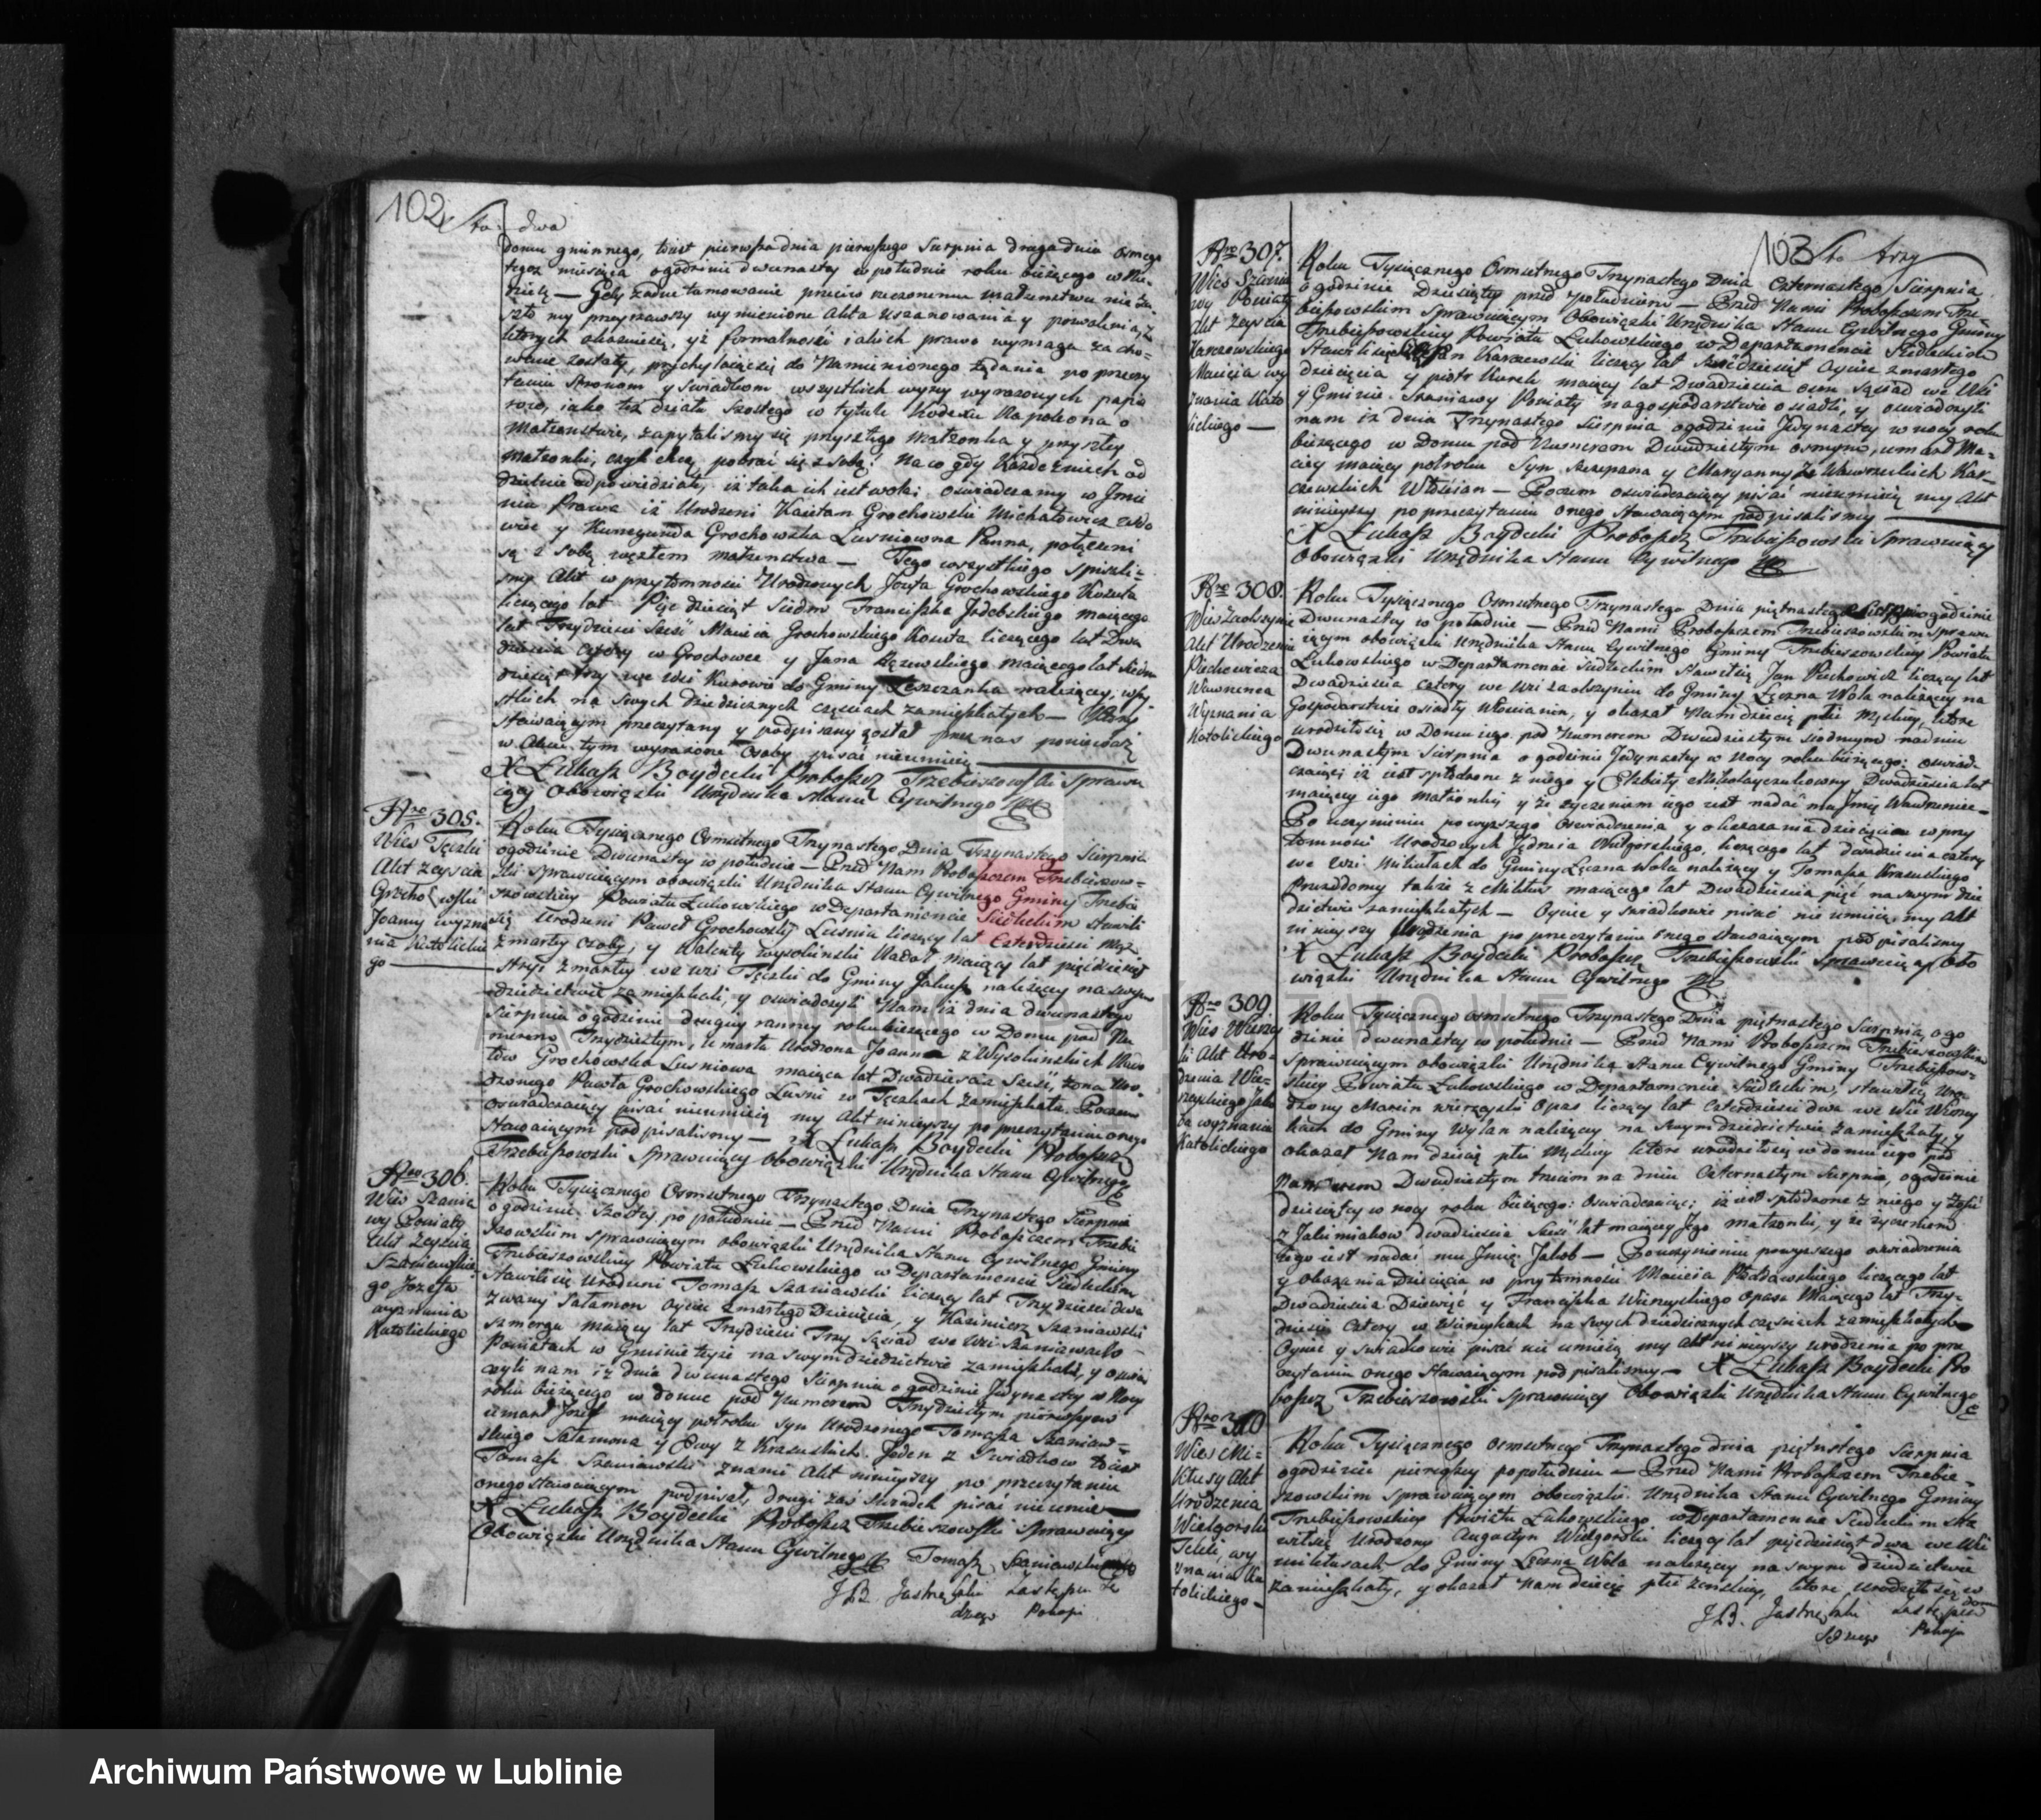 102 Sto dwa
domu gminnego, to iest pierwsza dnia pierwszego Sierpnia druga dnia osmego
tegoż miesiąca o godzinie dwunastey w południe roku bieżącego w Nie-
dzielę — Gdy żadne tamowanie przeciw rzeczonemu małżeństwu nie za-
szło my przeyrzawszy wymienione Akta uszanowania y pozwolenia, z
których okazuie się, iż formalności iakich prawo wymaga zacho-
wane zostały, przychylaiąc się do Namienionego żądania po przeczy
taniu Stronom y świadkom wszystkich wyżey wyrażonych papie
rów, iako też działu szostego w tytule Kodexu Napoleona o
Małżeństwie, zapytaliśmy się przyszłego małżonka y przyszłey
małżonki, czyli chcą pobrać się z sobą? na co gdy każde z nich od
dzielnie odpowiedziało, iż taka ich iest wola; oświadczamy w Imie
niu Prawa iż Urodzeni Kaietan Grochowski Michałowicz
y Kunegunda Grochowska Lusniowna Panna, połączeni
są z sobą węzłem małżeństwa — Tego wszystkiego spisali-
śmy Akt w przytomności Urodzonych Józefa Grochowskiego
liczącego lat Pięćdziesiąt Siedm Franciszka Jzdebskiego maiącego
lat Trzydzieści Sześć Macieia Grochowskiego liczącego lat Dwa
dzieścia cztery w Grochowce y Jana maiącego lat
dziesiąt trzy we Wsi Kurowie do Gminy Leszczanka należący, wszy-
stkich na swych dziedzicznych częściach zamieszkałych —
Stawaiącym przeczytany y podpisany został przez nas ponieważ
w Akcie tym wyrażone Osoby pisać nieumieią
X Łukasz Boydecki Proboszcz Trzebieszowski Sprawu
iący Obowiązki Urzędnika Stanu Cywilnego
Nro 305.
Wieś Tęczki
Akt Zeyścia
Grochowski
Joanny wyzna
nia Katolickie
go
Roku Tysiącznego Osmsetnego Trzynastego Dnia Trzynastego Sierpnia
o godzinie Dwunastey w południe — Przed Nami Proboszczem Trzebieszow-
skim sprawuiącym obowiązki Urzędnika Stanu Cywilnego Gminy Trzebie
szowskiey Powiatu Łukowskiego w Departamencie Siedleckim stawili
się Urodzeni Paweł Grochowski Lusnia liczący lat Czterdzieści Mąż
zmarłey osoby, y Walenty Wysokinski maiący lat pięćdziesiąt
stryi zmarłey we wsi Tęczki do Gminy należący na swym
dziedzictwie zamieszkali, y oświadczyli Nam iż dnia dwunastego
Sierpnia o godzinie drugiey ranney roku bieżącego w Domu pod Nu
merem Trzydziestym, umarła Urodzona Joanna z Wysokinskich
Grochowska Lusniowa, maiąca lat Dwadzieścia Sześć, żona Uro-
dzonego Pawła Grochowskiego Lusni w Tęczkach zamieszkała. Poczem
oświadczaiący pisać nieumieią my Akt ninieyszy po przeczytaniu onego
stawaiącym podpisaliśmy — X Łukasz Boydecki Proboszcz
Trzebieszowski Sprawuiący obowiązki Urzędnika Stanu Cywilnego
Nro 306.
Wieś Szania
wy Poniaty
Akt Zeyścia
Szaniawskie-
go Józefa
wyznania
Katolickiego
Roku Tysiącznego Osmsetnego Trzynastego Dnia Trzynastego Sierpnia
o godzinie Szostey po południu — Przed Nami Proboszczem Trzebie
szowskim sprawuiącym obowiązki Urzędnika Stanu Cywilnego Gminy
Trzebieszowskiey Powiatu Łukowskiego w Departamencie Siedleckim
stawili się Urodzeni Tomasz Szaniawski liczący lat Trzydzieści dwa
zwany Salamon Oyciec zmarłego Dziecięcia, y Kazimierz Szaniawski
maiący lat Trzydzieści Trzy Sąsiad we Wsi Szaniawach
Poniatach w Gminie teyże na swym dziedzictwie zamieszkali, y oświad
czyli nam iż dnia dwunastego Sierpnia o godzinie Jedynastey w Nocy
roku bieżącego w domu pod Numerem Trzydziestym pierwszym
umarł Józef maiący pół roku syn Urodzonego Tomasza Szaniaw-
skiego Salamona y Ewy z Krasuskich. Jeden z Świadków to iest
Tomasz Szaniawski z nami Akt ninieyszy po przeczytaniu
onego stawaiącym podpisał, drugi zaś Świadek pisać nieumie
X Łukasz Boydecki Proboszcz Trzebieszowski sprawuiący
Obowiązki Urzędnika Stanu Cywilnego Tomasz Szaniawski
J.B. Jastrzębski Zastępca Sę
dziego Pokoju
103 Sto trzy
Nro 307.
Wieś Szania
wy Poniaty
Akt Zeyścia
Karczewskiego
Macieia wy
znania Kato
lickiego —
Roku Tysiącznego Osmsetnego Trzynastego Dnia Czternastego Sierpnia
o godzinie Dziesiątey przed południem — Przed Nami Proboszczem Trze
bieszowskim Sprawuiącym Obowiązki Urzędnika Stanu Cywilnego Gminy
Trzebieszowskiey Powiatu Łukowskiego w Departamencie Siedleckim
Stawili się Karczewski liczący lat Oyciec zmarłego
dziecięcia y Piotr Kurek maiący lat Dwadzieścia osm Sąsiad we Wsi
y Gminie Szaniawy Poniaty na gospodarstwie osiadli, y oświadczyli
nam iż dnia Trzynastego Sierpnia o godzinie Jedynastey w nocy roku
bieżącego w Domu pod Numerem Dwudziestym osmym, umarł Ma-
ciey maiący pół roku Syn Szczepana y Maryanny Kar-
czewskich Włościan — Poczem oświadczaiący pisać nieumieią my Akt
ninieyszy po przeczytaniu onego stawaiącym podpisaliśmy
X Łukasz Boydecki Proboszcz Trzebieszowski Sprawuiący
Obowiązki Urzędnika Stanu Cywilnego
Nro 308.
Wieś Zaolszynie
Akt Urodzenia
Piechowicza
Wawrzenca
Wyznania
Katolickiego
Roku Tysiącznego Osmsetnego Trzynastego Dnia piętnastego Sierpnia o godzinie
Dwunastey w południe — Przed Nami Proboszczem Trzebieszowskim sprawu
iącym obowiązki Urzędnika Stanu Cywilnego Gminy Trzebieszowskiey Powiatu
Łukowskiego w Departamencie Siedleckim Stawił się Jan Piechowicz liczący lat
Dwadzieścia cztery we Wsi Zaolszyniu do Gminy Łęczna Wola należący na
Gospodarstwie osiadły Włościanin, y okazał Nam dziecię płci Męskiey, które
urodziło się w Domu iego pod Numerem Dwudziestym siodmym na dniu
Dwunastym Sierpnia o godzinie Jedynastey w Nocy roku bieżącego; oświad-
czaiąc iż iest spłodzone z niego y Elżbiety Dwadzieścia lat
maiącey iego Małżonki y że życzeniem iego iest nadać mu Imię Wawrzeniec —
Po uczynieniu powyższego Oświadczenia y okazania dziecięcia w przy
tomności Urodzonych Jędrzeia Wielgorskiego, liczącego lat dwadzieścia cztery
we Wsi Mikłusach do Gminy Łęczna Wola należący y Tomasza Krasuskiego
także z Mikłus maiącego lat Dwadzieścia pięć na swym dzie
dzictwie zamieszkałych — Oyciec y Świadkowie pisać nie umieią, my Akt
ninieyszy Urodzenia po przeczytaniu onego stawaiącym podpisaliśmy
X Łukasz Boydecki Proboszcz Trzebieszowski Sprawuiący Obo
wiązki Urzędnika Stanu Cywilnego
Nro 309.
Wieś Wierzey
ki Akt Uro-
dzenia Wie-
rzeyskiego Jaku
ba wyznania
Katolickiego
Roku Tysiącznego osmsetnego Trzynastego Dnia piętnastego Sierpnia, o go
dzinie dwunastey w południe — Przed Nami Proboszczem Trzebieszowskim
sprawuiącym obowiązki Urzędnika Stanu Cywilnego Gminy Trzebieszow-
skiey Powiatu Łukowskiego w Departamencie Siedleckim, stawił się Uro-
dzony Marcin Wierzeyski Opas liczący lat Czterdzieści dwa we Wsi Wierzey
kach do Gminy Wylan należący na swym dziedzictwie zamieszkały, y
okazał Nam dziecię płci Męskiey które urodziło się w domu iego pod
Numerem Dwudziestym trzecim na dniu Czternastym Sierpnia, o godzinie
dziesiątey w nocy roku bieżącego: oświadczaiąc; iż iest spłodzone z niego y Zofii
z Jakimiakow dwadzieścia sześć lat maiącey Jego małżonki, y że życzeniem
iego iest nadać mu Imię Jakob — Po uczynieniu powyższego oświadczenia
y okazania Dziecięcia w przytomności Macieia liczącego lat
Dwadzieścia Dziewięć y Franciszka Wierzeyskiego Opasa Maiącego lat Trzy-
dzieści Cztery w Wierzeykach na swych dziedzicznych częściach zamieszkałych
Oyciec y świadkowie pisać nie umieią my Akt ninieyszy urodzenia po prze
czytaniu onego stawaiącym podpisaliśmy — X Łukasz Boydecki Pro
boszcz Trzebieszowski Sprawuiący Obowiązki Urzędnika Stanu Cywilnego
Nro 310
Wieś Mi-
kłusy Akt
Urodzenia
Wielgorski
Tekli, wy
znania Ka
tolickiego —
Roku Tysiącznego osmsetnego Trzynastego dnia piętnastego Sierpnia
o godzinie pierwszey po południu — Przed Nami Proboszczem Trzebie-
szowskim sprawuiącym obowiązki Urzędnika Stanu Cywilnego Gminy
Trzebieszowskiey Powiatu Łukowskiego w Departamencie Siedleckim sta
wił się Urodzony Augustyn Wielgorski liczący lat pięćdziesiąt dwa we Wsi
Mikłusach do Gminy Łęczna Wola należący na swym dziedzictwie
zamieszkały, y okazał Nam dziecię płci żeńskiey, które urodziło się w
domu
J.B. Jastrzębski Zastępca
Sędziego Pokoju
ARCHIWUM PAŃSTWOWE
W LUBLINIE
Archiwum Państwowe w Lublinie